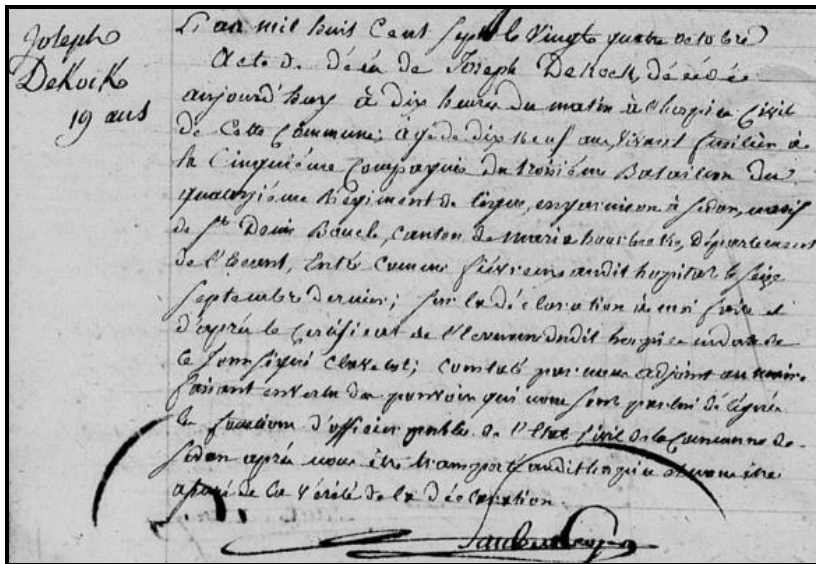 Joseph
DeKock
19 ans
L'an mil huit Cent sept le Vingt quatre octobre
Acte de décès de Joseph DeKock, décédé
aujourd'huy à dix heures du matin à l'hospice Civil
de Cette Commune, âgé de dix neuf ans, Vivant fusilier à
la Cinquième Compagnie du troisième Bataillon du
Régiment de ligne, en garnison à Sedan, natif
de St Denis Boucle, Canton de Maria hoorebeke, Département
de l'Escaut, Entré Comme fiévreux audit hopital le seize
Septembre dernier; sur la déclaration à moi faite et
d'après le Certificat de l'Econome dudit hospice en date de
Ce Jour signé; Constaté par nous adjoint au maire
faisant en vertu du pouvoir qui nous sont par lui délégués
les fonctions d'officier public de l'Etat Civil de la Commune de
Sedan après nous être transporté audit hospice et nous être
assuré de la Vérité de la déclaration